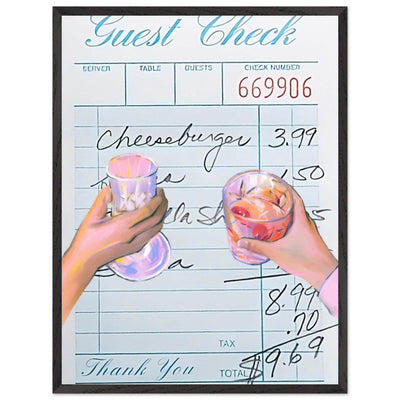 Guest Check
SERVER TABLE GUESTS CHECK NUMBER
669906
Cheeseburger 3.99
1.50
8.99
.70
TAX
Thank You TOTAL $9.69